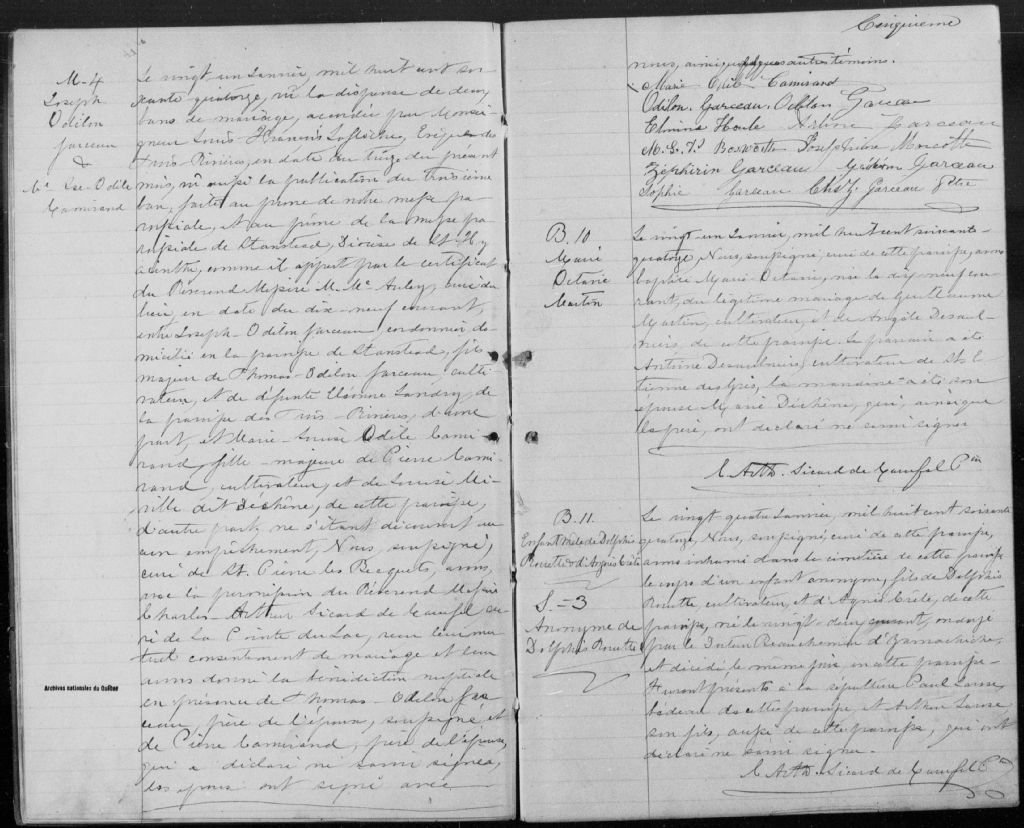 M-4
Joseph
Odilon
Garceau
&
Me Lse Odile
Camirand
Le vingt-un Janvier, mil huit cent soi-
xante quatorze, vû la dispense de deux
bans de mariage, accordée par Monsei-
gneur Louis François Laflèche, Evêque des
Trois-Rivières, en date du du présent
mois, vû aussi la publication du troisième
ban, faite au prône de notre messe pa-
roissiale, et au prône de la messe pa-
roissiale de Stanstead, Diocèse de St. Hy-
acinthe, comme il appert par le certificat
du Révérend Messire M. Mc Auley, curé du
lieu, en date du dix-neuf courant,
entre Joseph-Odilon Garceau, cordonnier do-
micilié en la paroisse de Stanstead, fils
majeur de Thomas-Odilon Garceau culti-
vateur, et de défunte Landry, de
la paroisse des Trois-Rivières, d'une
part, et Marie-Louise Odile Cami-
rand, fille majeure de Pierre Cami-
rand, cultivateur, et de Louise Mi-
ville dit Déchêne, de cette paroisse,
d'autre part, ne s'étant découvert au-
cun empêchement, Nous, soussigné,
curé de St. Pierre les Becquets, avons,
avec la permission du Révérend Messire
Charles-Arthur Sicard de Carufel cu-
ré de La Pointe du Lac, reçu leur mu-
tuel consentement de mariage et leur
avons donné la bénédiction nuptiale
en présence de Thomas-Odilon Gar-
ceau, père de l'époux, soussigné et
de Pierre Camirand, père de l'épouse,
qui a déclaré ne savoir signer,
les époux ont signé avec
Archives nationales du Québec
Cinquième
nous, ainsi que quelques autres témoins.
Marie Odile Camirand
Odilon Garceau. Odilon Garceau
Elmina Houle Garceau
Josephine Marcotte
Zéphirin Garceau Garceau
Sophie Garceau Chs Z. Garceau Ptre
B. 10
Marie
Octavie
Martin
Le vingt-un Janvier, mil huit cent soixante-
quatorze, Nous, soussigné, curé de cette paroisse, avons
baptisé Marie Octavie, née le dix-neuf cou-
rant, du légitime mariage de Guillaume
Martin, cultivateur, et de Angèle Desaul-
niers, de cette paroisse. Le parrain a été
Antoine Desaulniers, cultivateur de St. E-
tienne des Grès, la marraine a été son
épouse Marie Déchêne, qui, ainsi que
le père, ont déclaré ne savoir signer
C. Arth. Sicard de Carufel Ptre
B. 11.
Enfant mâle de Dolphis
Rouette & d'Agnès Crête
S. - 3
Anonyme de
Dolphis Rouette
Le vingt-quatre Janvier, mil huit cent soixante
quatorze, Nous, soussigné, curé de cette paroisse,
avons inhumé dans le cimetière de cette paroisse
le corps d'un enfant anonyme, fils de Dolphis
Rouette, cultivateur, et d'Agnès Crête, de cette
paroisse, né le vingt-deux courant, ondoyé
par le Docteur Beauchemin d'Yamachiche,
et décédé le même jour en cette paroisse.
Furent présents à la sépulture Paul
bédeau de cette paroisse, et Arthur
son fils, aussi de cette paroisse, qui ont
déclaré ne savoir signer.
C. Arth. Sicard de Carufel Ptre